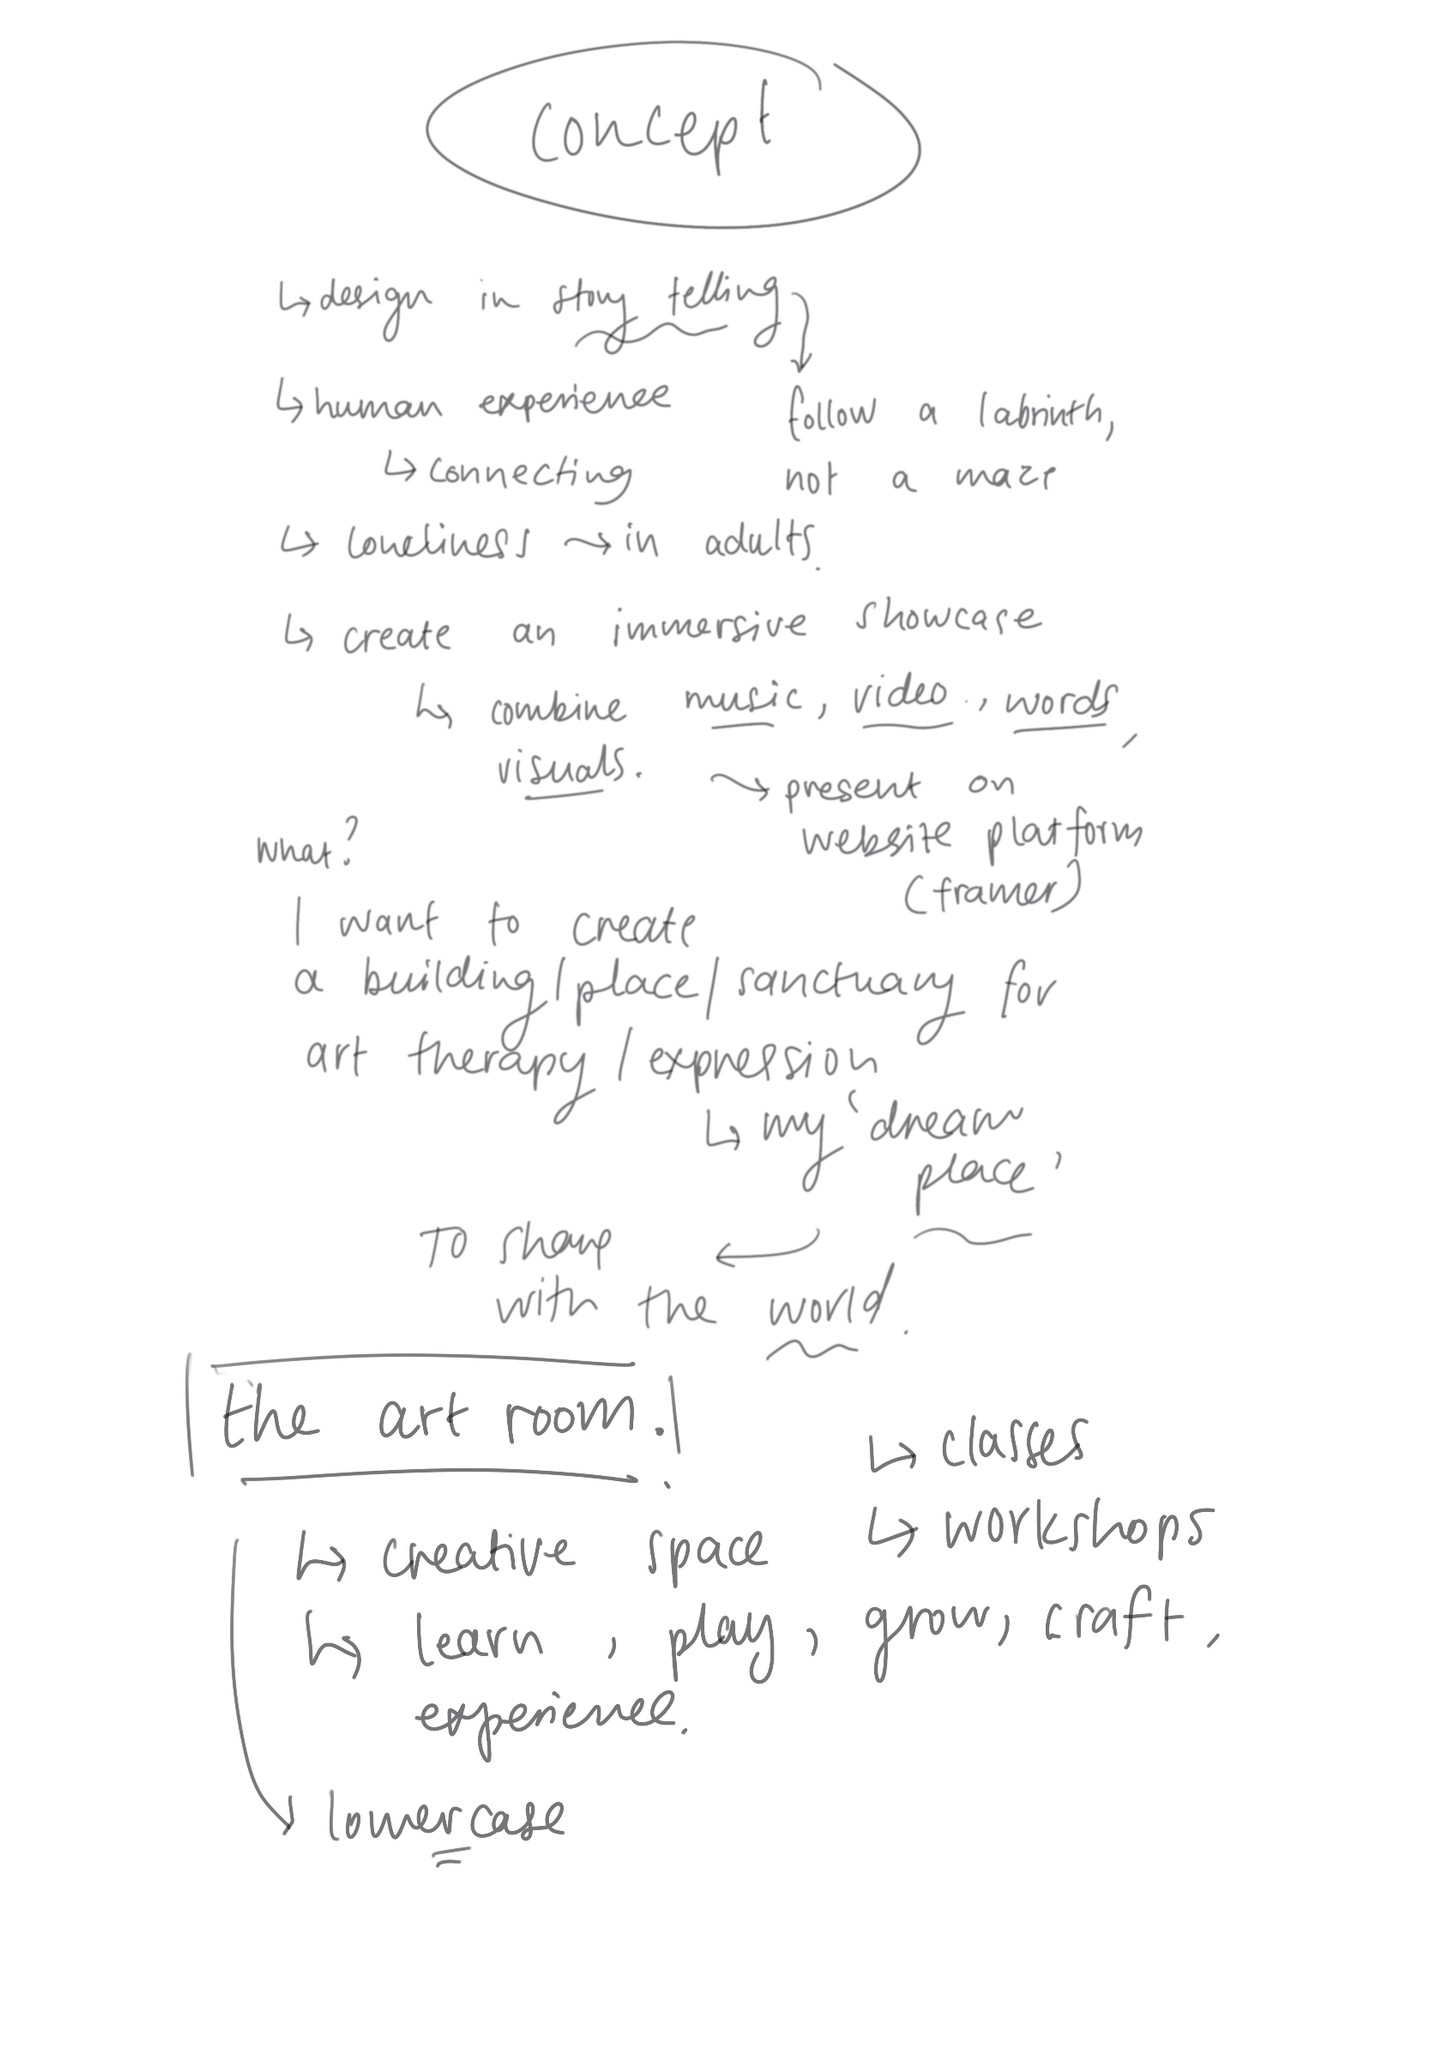 concept
↳ design in story telling
↳ human experience
follow a labrinth,
↳ connecting
not a maze
↳ loneliness → in adults.
↳ create an immersive showcase
↳ combine music, video, words,
visuals.
→ present on
website platform
(framer)
what?
I want to create
a building/place/sanctuary for
art therapy/expression
↳ my 'dream
place'
TO share
with the world.
the art room.
↳ classes
↳ workshops
↳ creative space
↳ learn, play, grow, craft,
experience.
lowercase